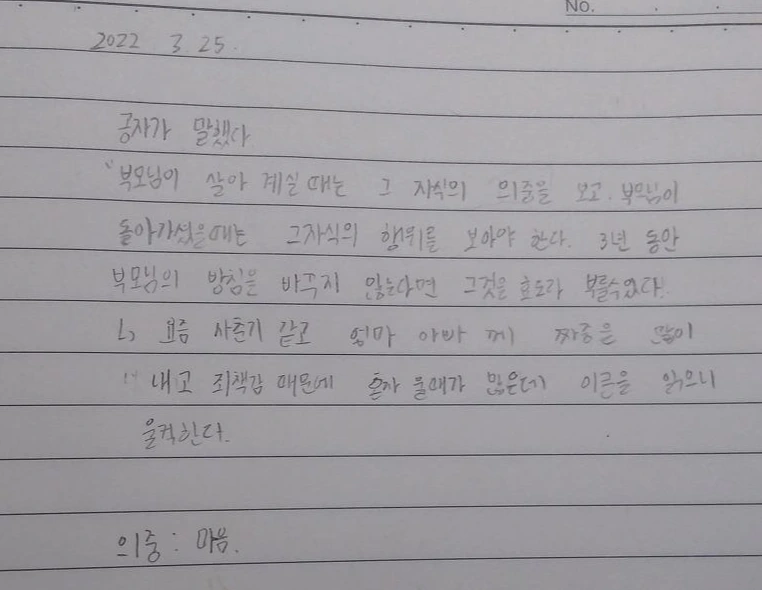 No.
2022 3 25.
공자가 말했다
"부모님이 살아 계실 때는 그 자식의 의중을 보고. 부모님이
돌아가셨을때는 그자식의 행위를 보아야 한다. 3년 동안
부모님의 방침을 바꾸지 않는다면 그것을 효도라 부를수있다.
↳ 요즘 사춘기 같고 엄마 아빠 께 짜증을 많이
내고 죄책감 때문에 혼자 울때가 많은데 이글을 읽으니
울컥한다.
의중 : 마음.